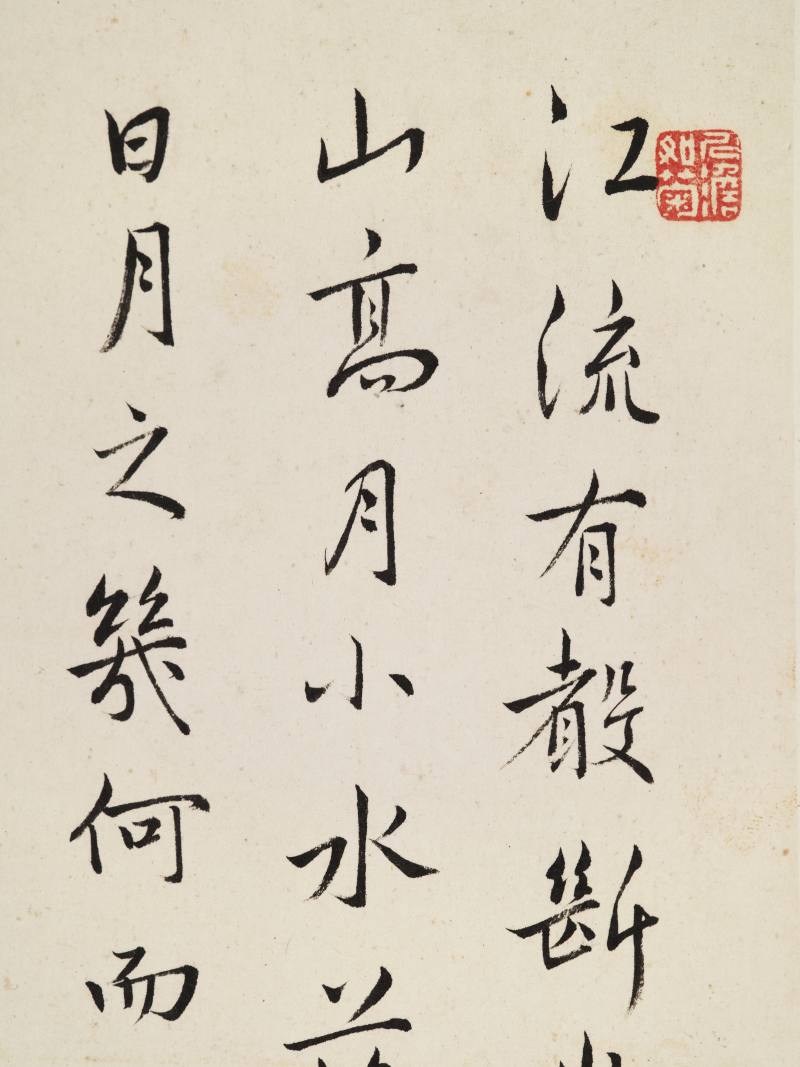 江流有聲斷
山高月小水落
日月之幾何而